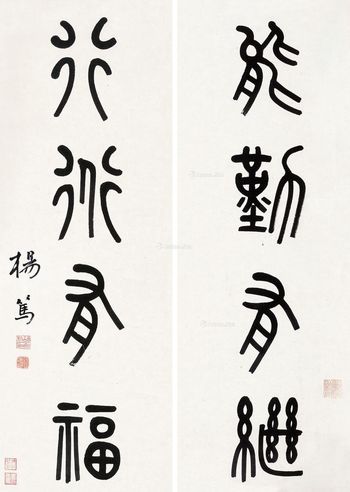 能勤有繼
行道有福
楊篤